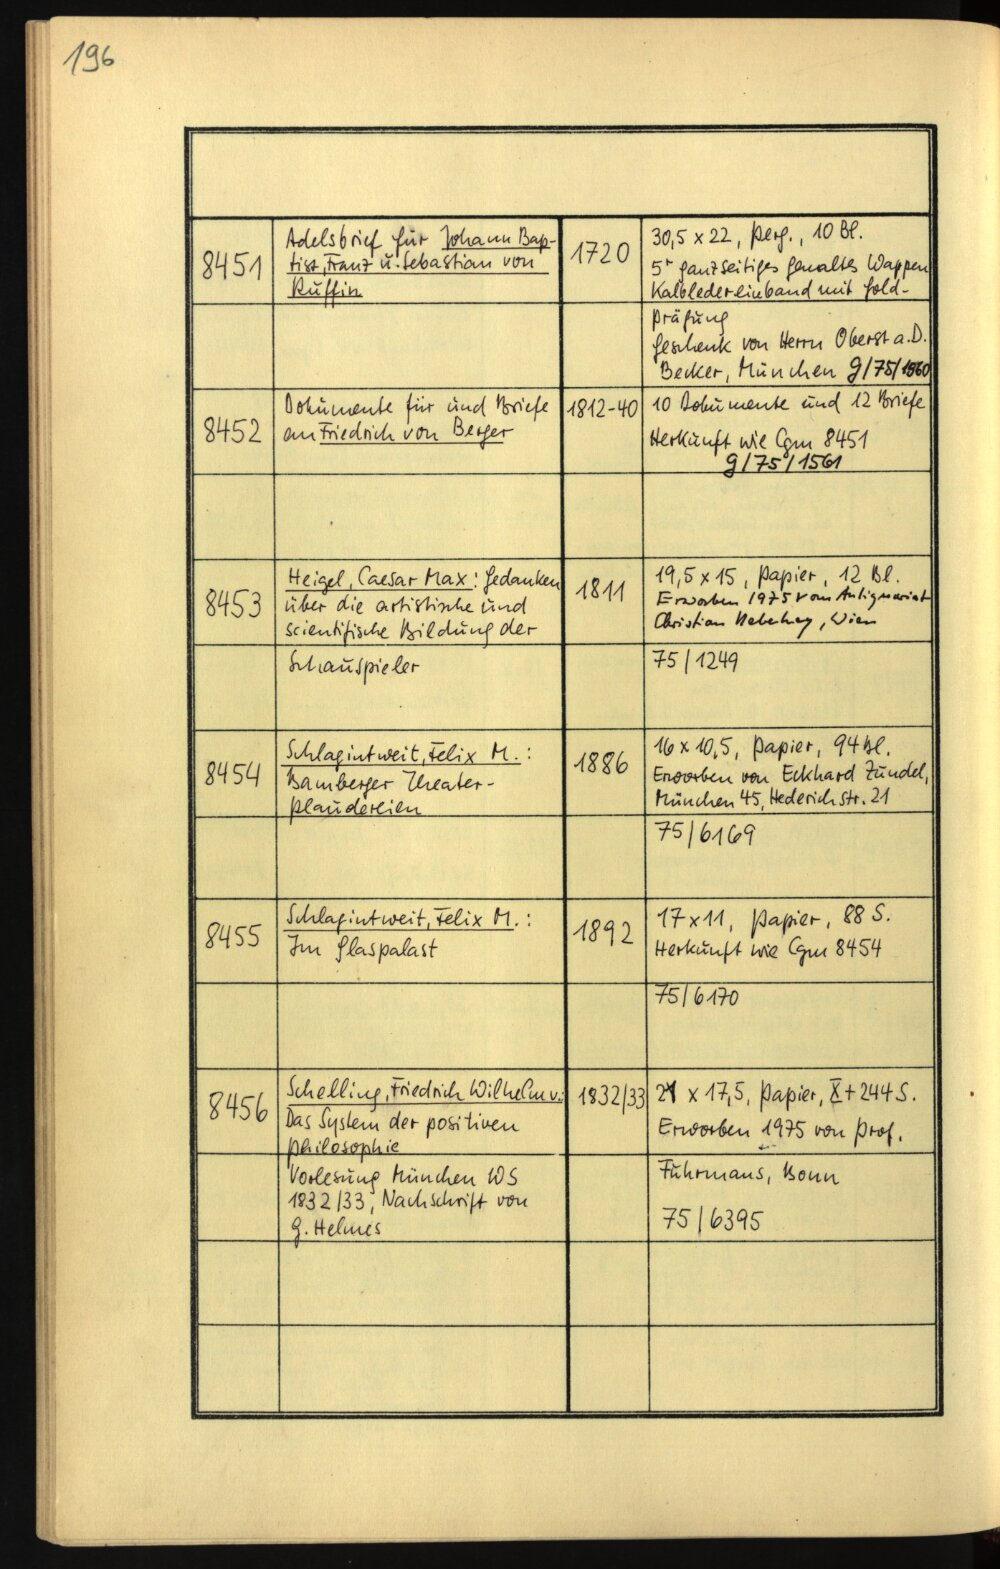 196
8451
Adelsbrief für Johann Bap-
tist, Franz u. Sebastian von
Ruffin
1720
30,5 x 22, Perg., 10 Bl.
5r ganzseitiges gemaltes Wappen
Kalbledereinband mit Gold-
prägung
Geschenk von Herrn Oberst a.D.
Becker, München G/75/1560
8452
Dokumente für und Briefe
an Friedrich von Berger
1812-40
10 Dokumente und 12 Briefe
Herkunft wie Cgm 8451
G/75/1561
8453
Heigel, Caesar Max: Gedanken
über die artistische und
scientifische Bildung der
Schauspieler
1811
19,5 x 15, Papier, 12 Bl.
Erworben 1975 vom Antiquariat
Christian Nebehay, Wien
75/1249
8454
Schlagintweit, Felix M.:
Bamberger Theater-
plaudereien
1886
16 x 10,5, Papier, 94 Bl.
Erworben von Eckhard Zündel,
München 45, Hederichstr. 21
75/6169
8455
Schlagintweit, Felix M.:
Im Glaspalast
1892
17 x 11, Papier, 88 S.
Herkunft wie Cgm 8454
75/6170
8456
Schelling, Friedrich Wilhelm v.:
Das System der positiven
Philosophie
Vorlesung München WS
1832/33, Nachschrift von
G. Helmes
1832/33
21 x 17,5, Papier, X + 244 S.
Erworben 1975 von Prof.
Fuhrmans, Bonn
75/6395